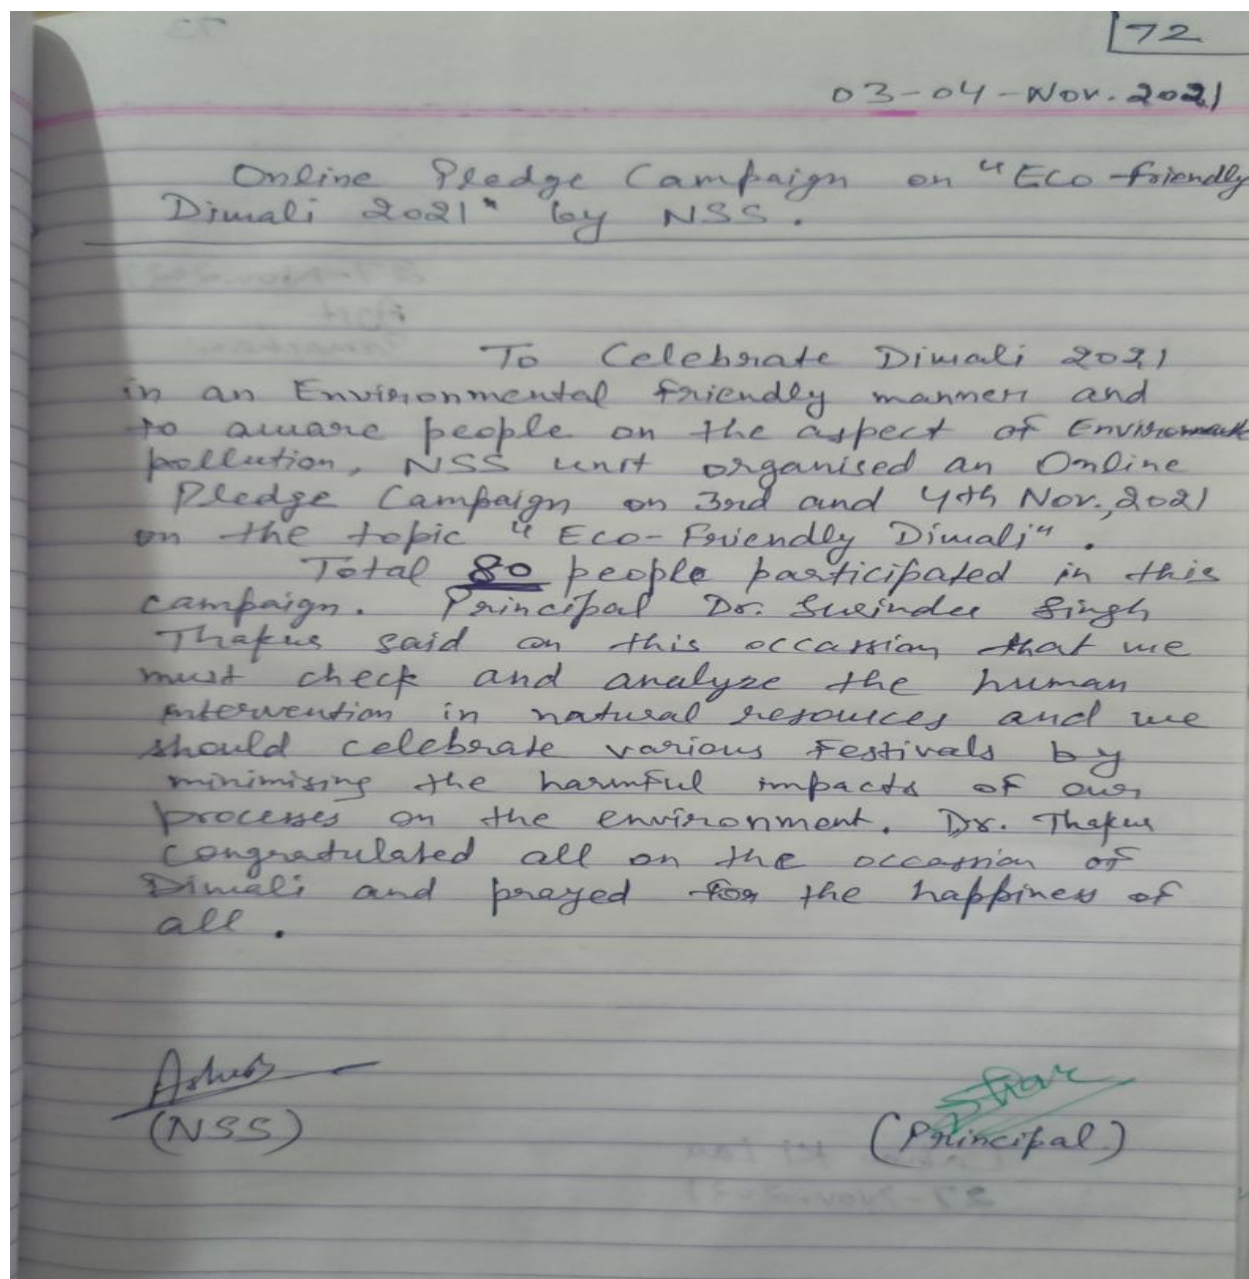 72
03-04-Nov. 2021
Online Pledge Campaign on "Eco-friendly
Diwali 2021" by NSS.
To Celebrate Diwali 2021
in an Environmental friendly manner and
to aware people on the aspect of
pollution, NSS unit organised an Online
Pledge Campaign on 3rd and 4th Nov., 2021
on the topic "Eco-Friendly Diwali".
Total 80 people participated in this
campaign. Principal Dr. Surinder Singh
Thakur said on this occassion that we
must check and analyze the human
intervention in natural resources and we
should celebrate various Festivals by
minimising the harmful impacts of our
processes on the environment. Dr. Thakur
Congratulated all on the occassion of
Diwali and prayed for the happiness of
all.
(NSS)
(Principal)